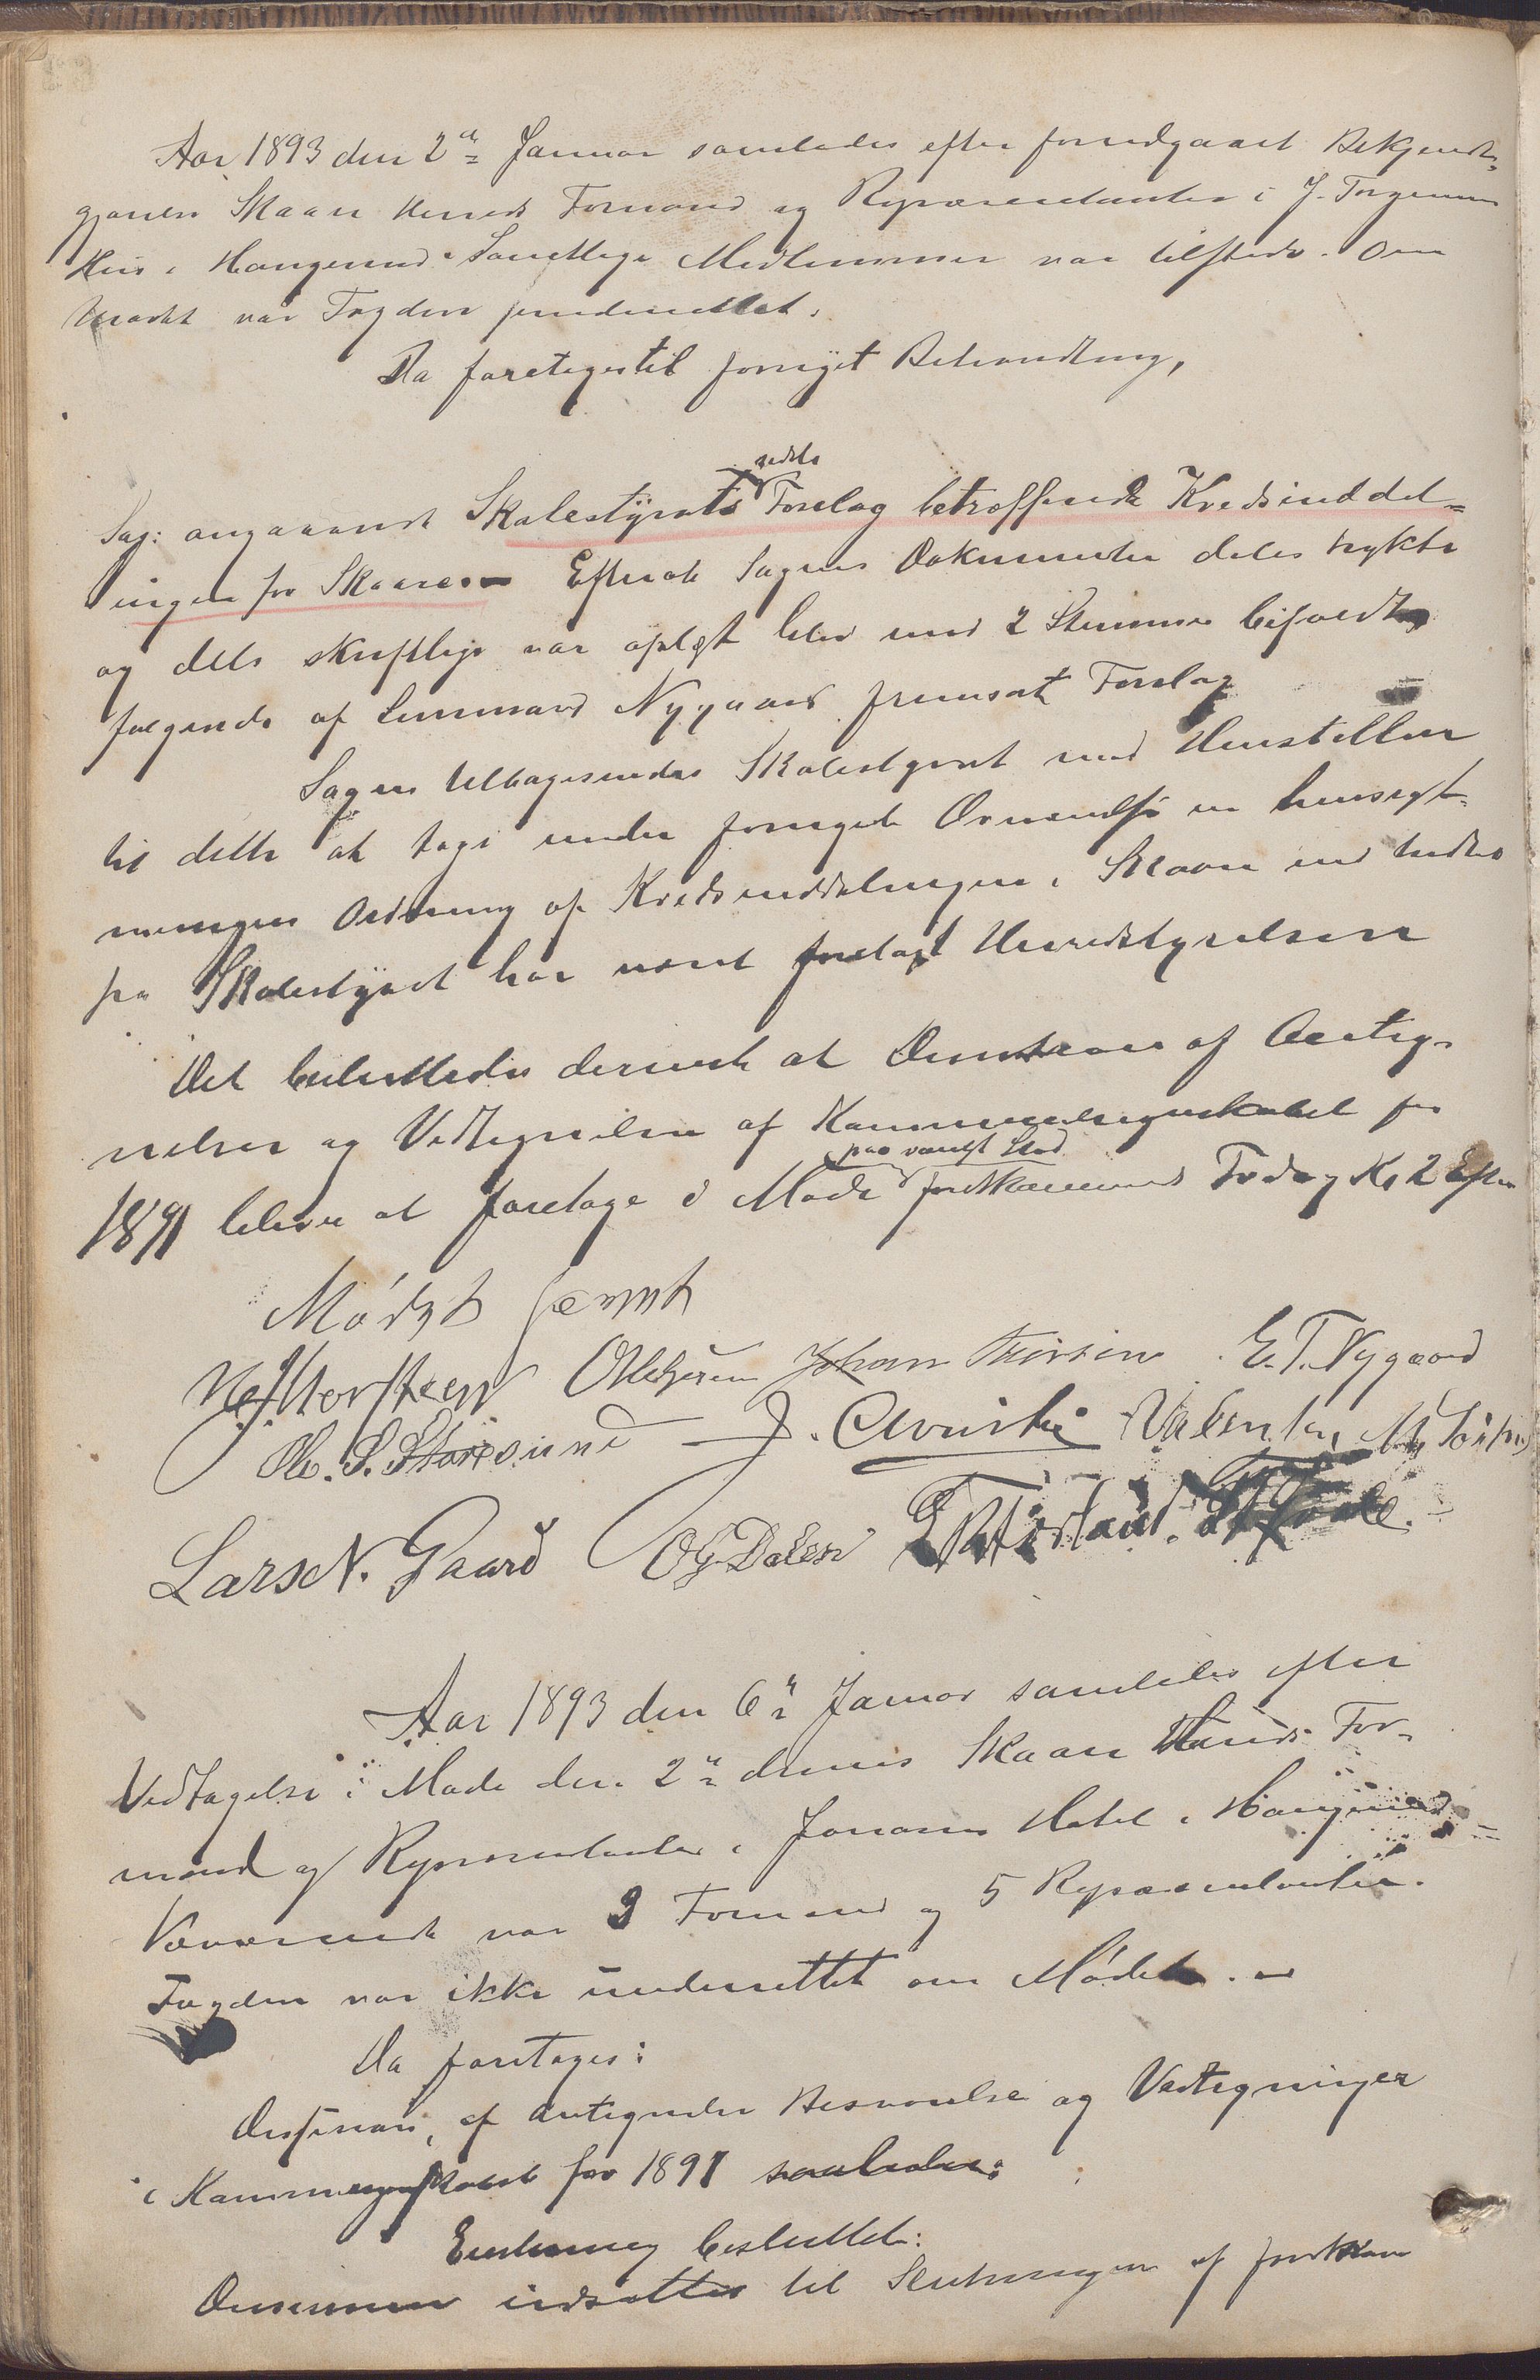 Aar 1893 den 2den Januar samledes efter forudgaaet Bekjendt-
gjørelse Skaare Herreds Formænd og Repræsentanter i J. Torgersens
Hus i Haugesund. Samtlige Medlemmer var tilstede. Om
Mødet var Fogden underrettet.
Da foretoges til fornyet Behandling,
Sag: angaaende Skolestyrets Forslag betræffende Kredsinddel-
ingen for Skaare. Efterat Sagens Dokumenter dels trykte
og dels skriftlige var oplæst blev med 2 Stemmer bifaldt
følgende af Lensmand Nygaard fremsat Forslag
Sagen tilbagesendes Skolestyret med Henstillen
til dette at tage under fornyet Overveielse en hensigt-
mæssigere Ordning af Kredsinddelingen i Skaare end hidtil
fra Skolestyret har været forelagt Herredstyrelsen
Det besluttedes dernæst at Decision af Anteg-
nelser og Vedtegnelse af Kommuneregnskabet for
paa vanligt Sted
1891 bliver at foretage i Møde førstkommende Fredag Kl 2 Efter
Mødet hævet
Johan Thorsen E. T. Nygaard
Ole. S. Storesund J. Christie Valentin
Lars N. Gaard O G Dalen
Aar 1893 den 6te Januar samledes efter
Vedtagelse i Møde den 2den dennes Skaare Herreds For-
mænd og Repræsentanter i Jonassens Hotel i Haugesund
Nærværende var 3 Formænd og 5 Repræsentanter.
Fogden var ikke underrettet om Mødet.
Da foretoges:
Decision, af Antegnelser Besvarelse og Vedtegninger
i Kommuneregnskabet for 1891 saaledes:
Enstemmig besluttet:
Decisionen udsættes til Slutningen af førstkom